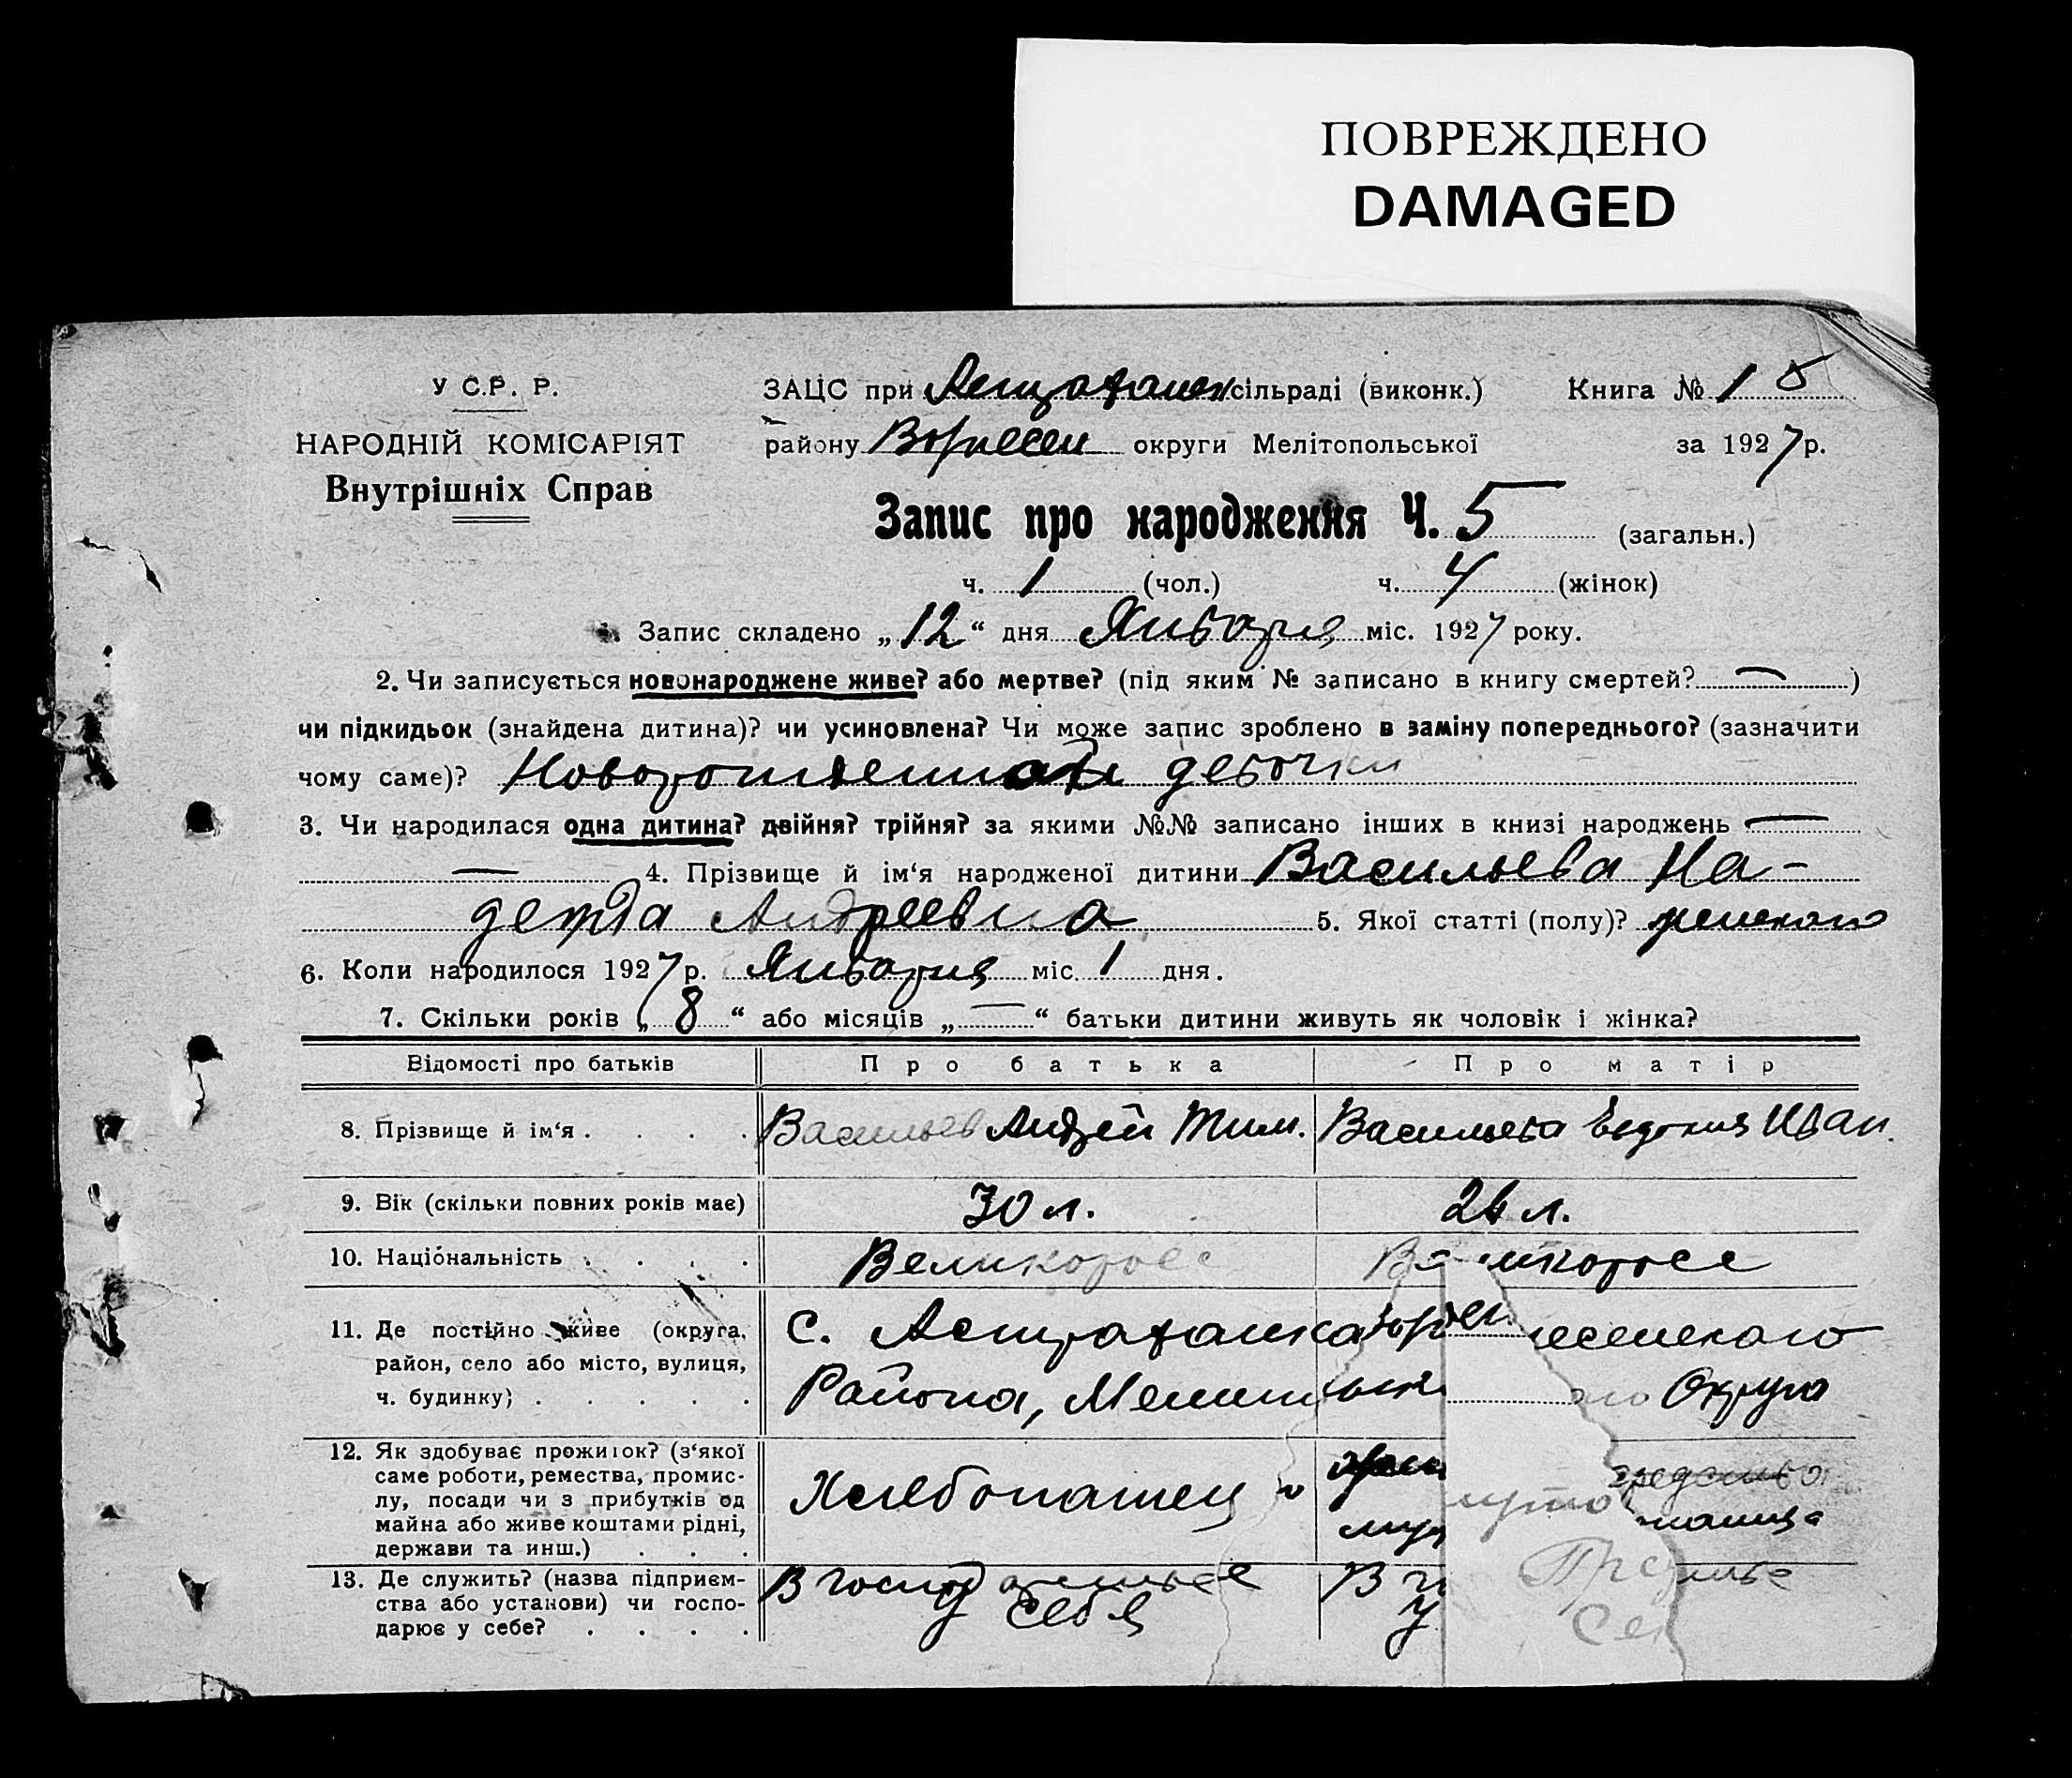 ПОВРЕЖДЕНО
DAMAGED
У С.Р. Р.
НАРОДНІЙ КОМІСАРІЯТ
Внутрішніх Справ
ЗАЦС при Астраханск сільраді (виконк.) Книга № 1
району округи Мелітопольської за 1927 р.
Запис про народження Ч. 5 (загальн.)
ч. 1 (чол.) ч. 4 (жінок)
Запис складено „12“ дня Января міс. 1927 року.
2. Чи записується новонароджене живе? або мертве? (під яким № записано в книгу смертей? — )
чи підкидьок (знайдена дитина)? чи усиновлена? Чи може запис зроблено в заміну попереднього? (зазначити
чому саме)? девочки
3. Чи народилася одна дитина? двійня? трійня? за якими №№ записано інших в книзі народжень —
— 4. Прізвище й ім‘я народженої дитини Васильева На-
дежда Андреевна 5. Якої статті (полу)? женскаго
6. Коли народилося 1927 р. Января міс. 1 дня.
7. Скільки років „8“ або місяців „—“ батьки дитини живуть як чоловік і жінка?
Відомості про батьків Про батька Про матір
8. Прізвище й ім‘я . . . . Васильев Андрей Тим. Васильева Евдокия Иван.
9. Вік (скільки повних років має) 30 л. 26 л.
10. Національність . . . . Великоросс
11. Де постійно живе (округа, с. Астраханка
район, село або місто, вулиця, Района, Округа
ч. будинку) . . . . .
12. Як здобуває прожиток? (з‘якої
саме роботи, ремества, промис-
лу, посади чи з прибутків од Хлебопашец
майна або живе коштами рідні,
держави та инш.) . . .
13. Де служить? (назва підприєм- В
ства або установи) чи госпо- себя
дарює у себе? . . . .